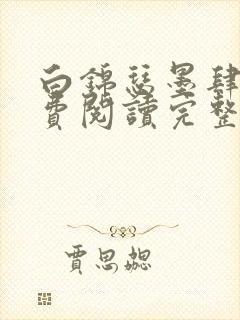 白錦瑟墨肆
費閱讀完整
賈思勰